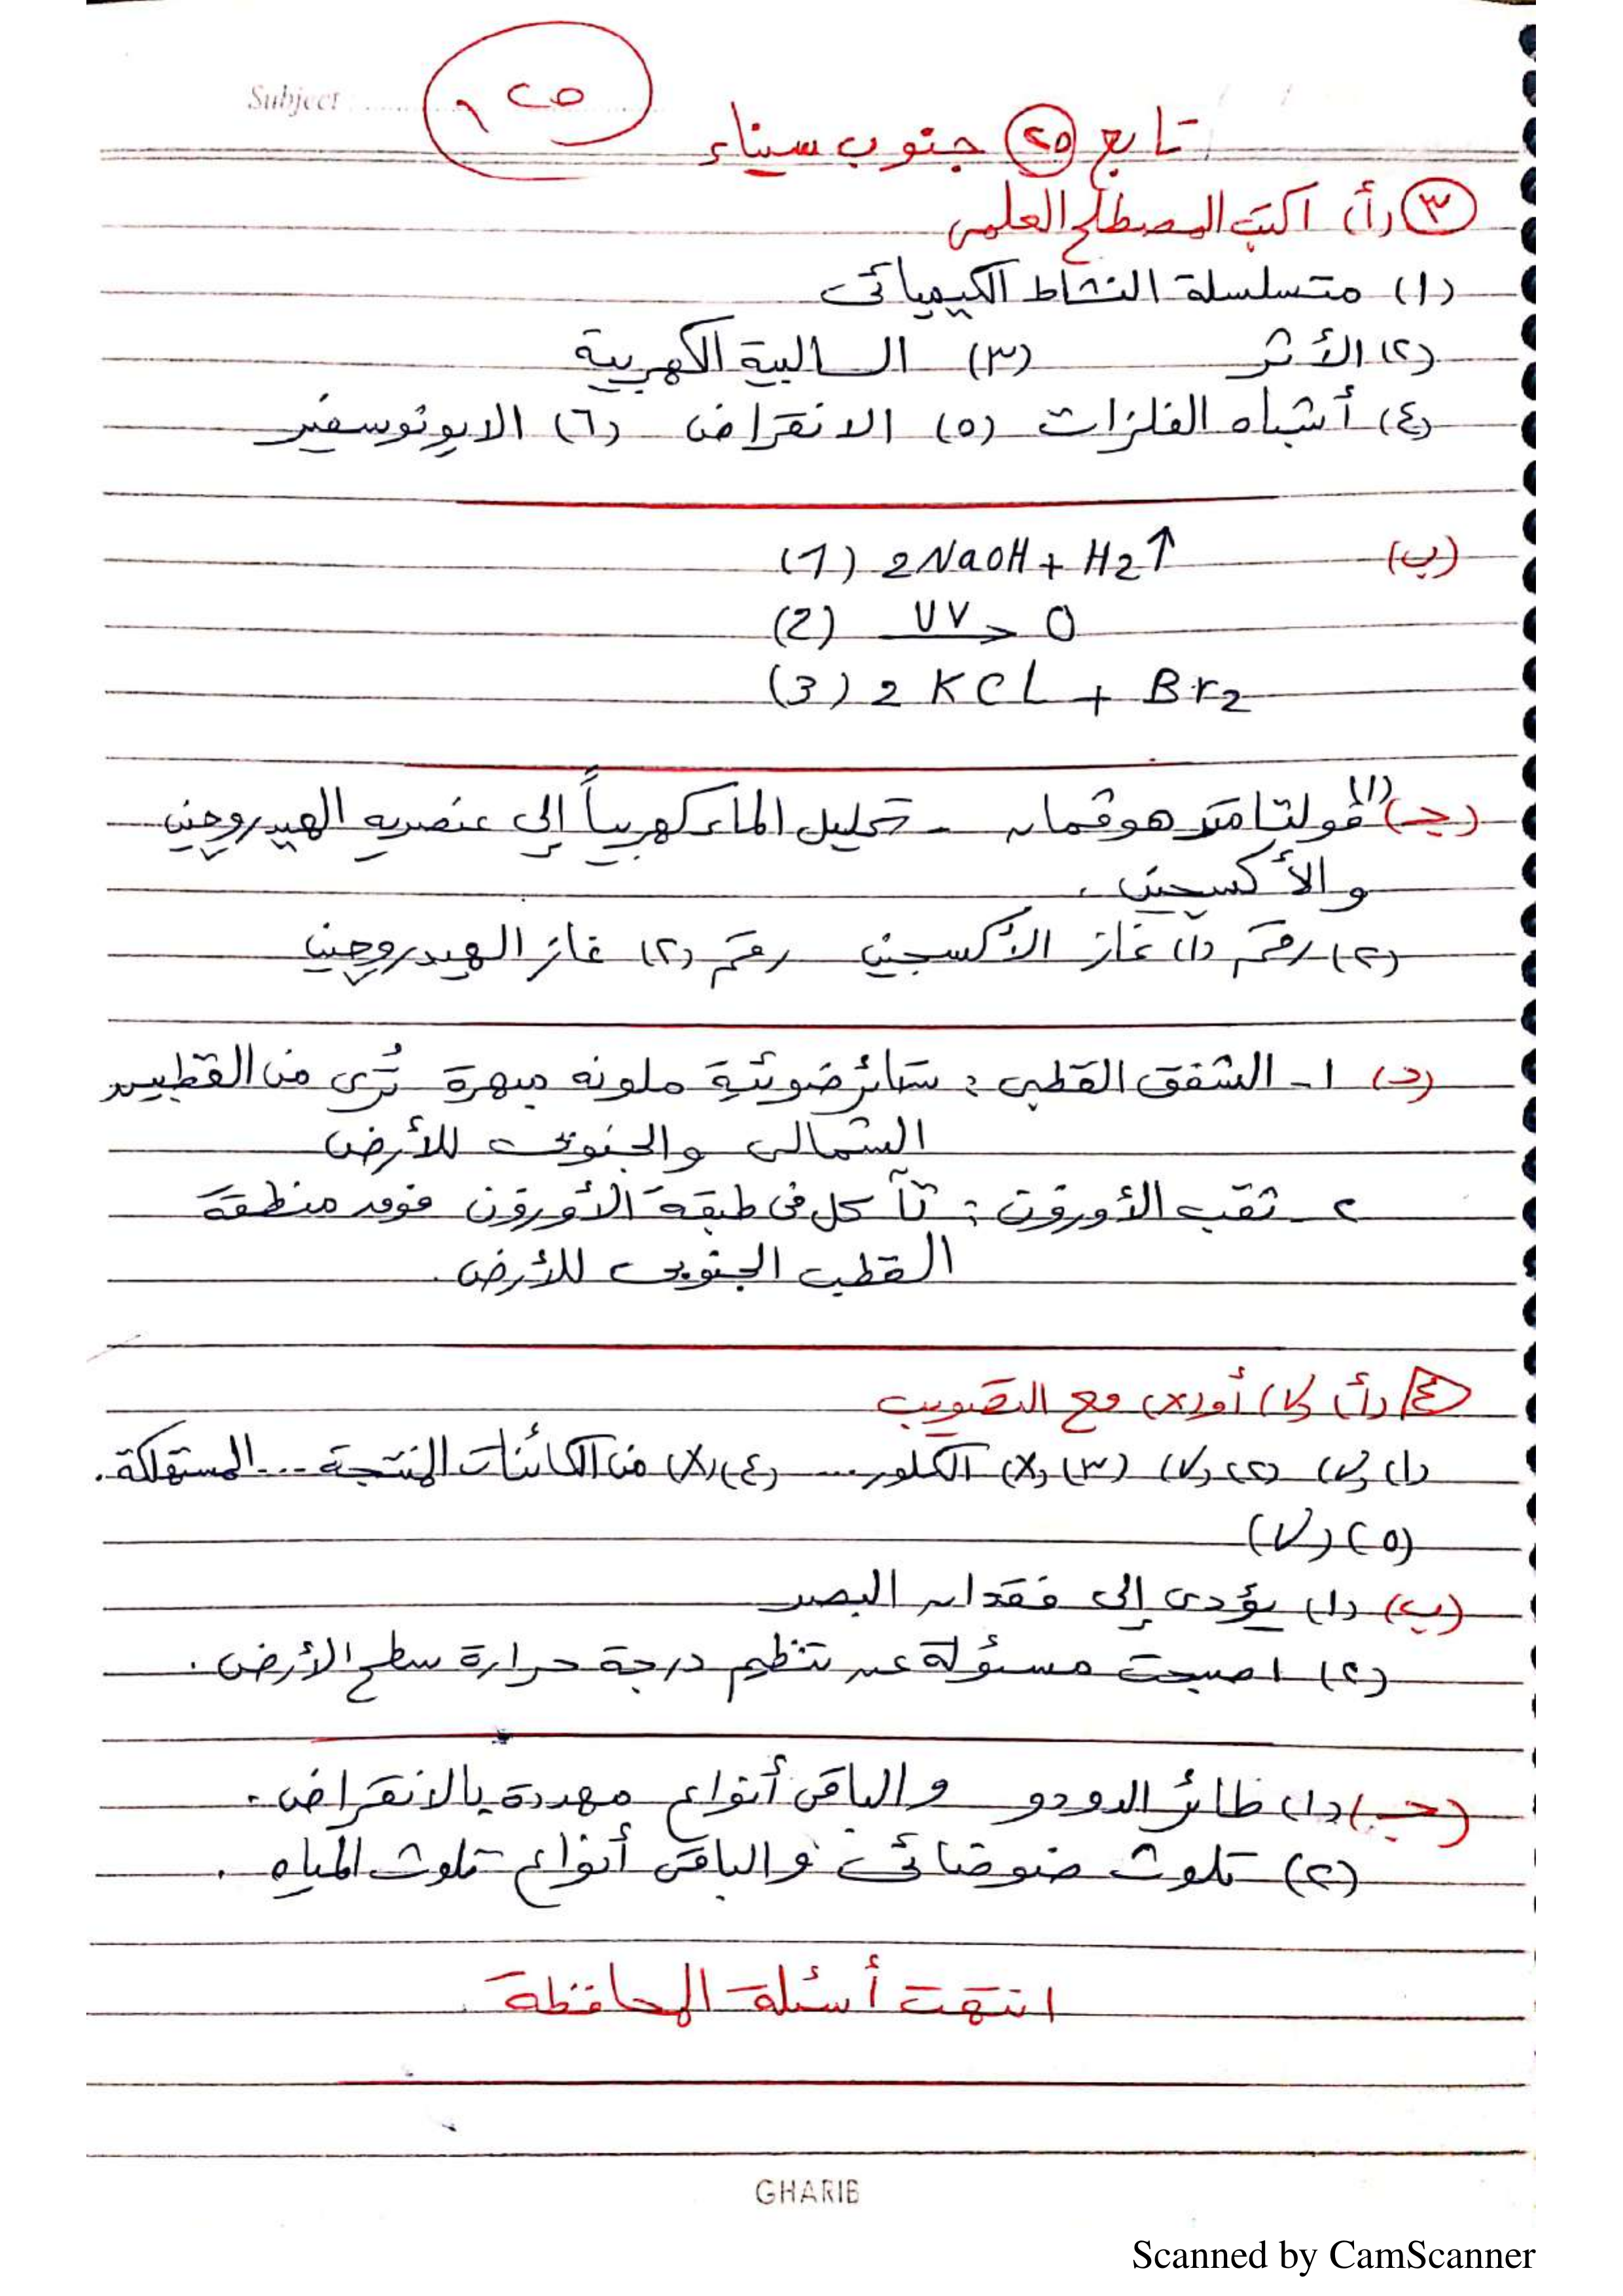 Subject
تابع (٢٥) جنوب سيناء
(٣) (أ) اكتب المصطلح العلمى
(١) متسلسلة النشاط الكيميائى
(٢) الأثر (٣) السالبية الكهربية
(٤) أشباه الفلزات (٥) الانقراض (٦) الايونوسفير
(ب) (1) 2NaOH + H2↑
(2) UV> O
(3) 2KCl + Br2
(جـ) (١) ڤولتامتر هوفمان - تحليل الماء كهربياً إلى عنصريه الهيدروچين
والأكسچين.
(٢) رقم (١) غاز الأكسجين رقم (٢) غاز الهيدروچين
(د) ١- الشفق القطبى : ستائر ضوئية ملونه مبهرة تُرى من القطبين
الشمالى والجنوبى للأرض
٢- ثقب الأوزون : تآكل فى طبقة الأوزون فوق منطقة
القطب الجنوبى للأرض.
٤ (أ) (√) أو (x) مع التصويب
(١) (√) (٢) (√) (٣) (x) الكلور .... (٤) (x) من الكائنات المنتجة ... المستهلكة.
(٥) (√)
(ب) (١) يؤدى إلى فقدان البصر
(٢) اصبحت مسئولة عن تنظيم درجة حرارة سطح الأرض.
(جـ) (١) طائر الدودو والباقى أنواع مهددة بالانقراض.
(٢) تلوث ضوضائى والباقى أنواع تلوث المياه.
انتهت أسئلة المحافظة
GHARIB
Scanned by CamScanner